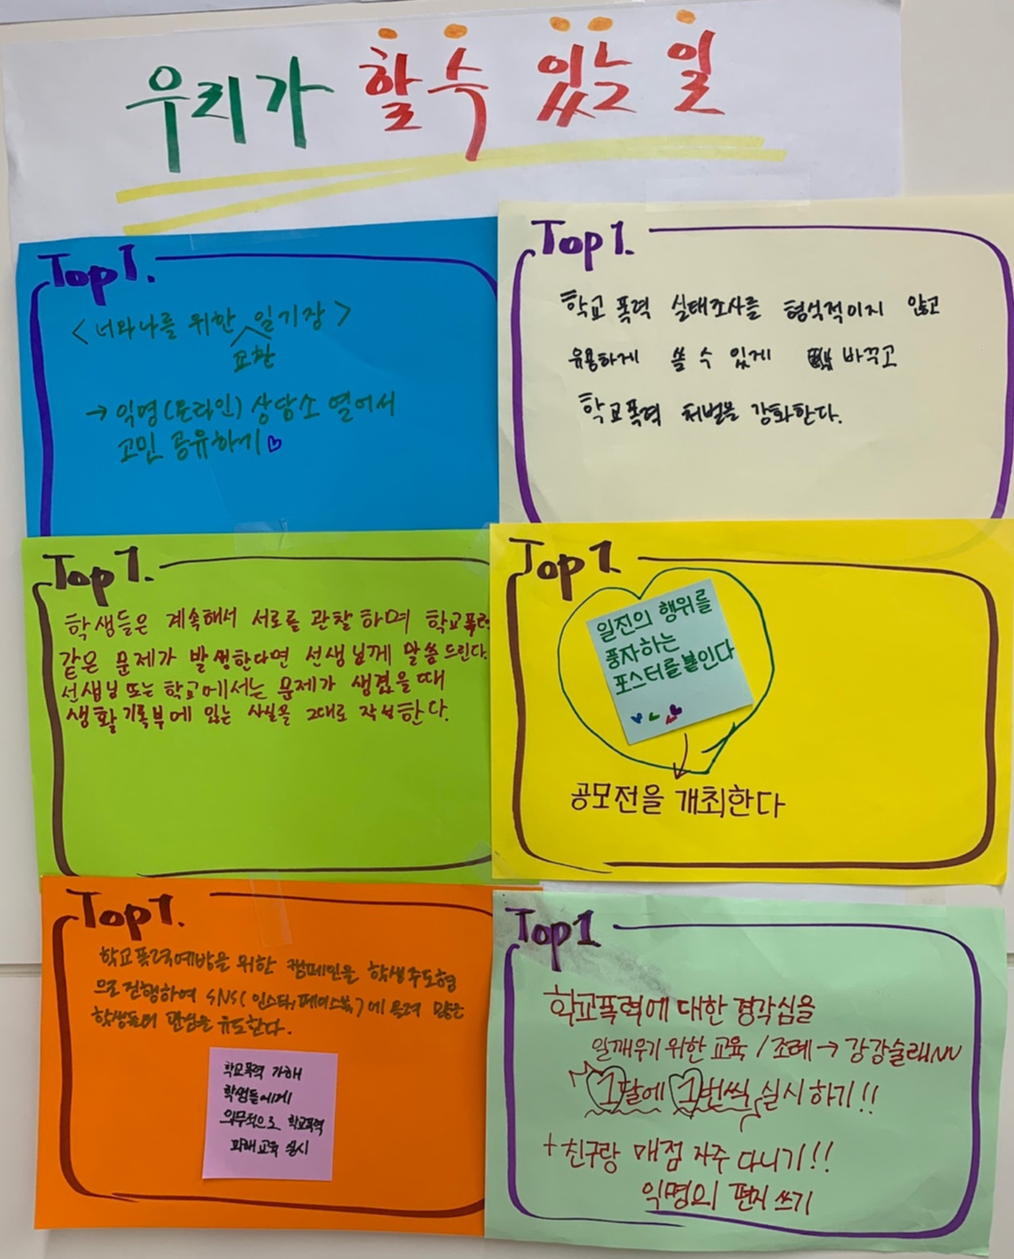 우리가 할 수 있는 일
Top 1.
<너와나를 위한 일기장>
교환
→ 익명(온라인) 상담소 열어서
고민 공유하기♡
Top 1.
학교 폭력 실태조사를 형식적이지 않고
유용하게 쓸 수 있게 바꾸고
학교폭력 처벌을 강화한다.
Top 1.
학생들은 계속해서 서로를 관찰하며 학교폭력
같은 문제가 발생한다면 선생님께 말씀드린다.
선생님 또는 학교에서는 문제가 생겼을 때
생활기록부에 있는 사실을 그대로 작성한다.
Top 1
일진의 행위를
풍자하는
포스터를 붙인다
공모전을 개최한다
Top 1.
학교폭력예방을 위한 캠페인을 학생주도형
으로 진행하여 SNS(인스타,페이스북)에 올려 많은
학생들의 관심을 유도한다.
학교폭력 가해
학생들에게
의무적으로 학교폭력
교육 실시
Top 1
학교폭력에 대한 경각심을
일깨우기 위한 교육 / 조례 → 강강술래
1달에 1번씩 실시하기!!
+ 친구랑 매점 자주 다니기!!
익명의 편지 쓰기